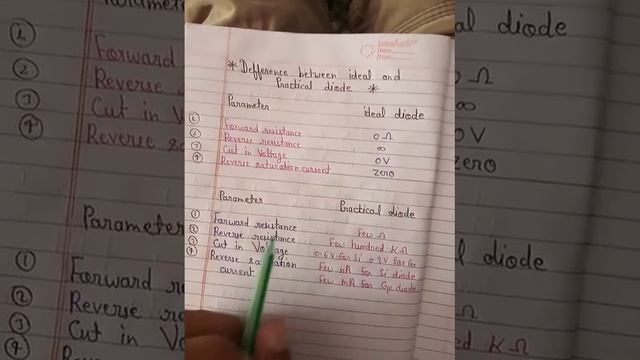 * Difference between ideal and
Practical diode *
Parameter ideal diode
① Forward resistance 0 Ω
② Reverse resistance ∞
③ Cut in Voltage 0V
④ Reverse saturation current zero
Parameter Practical diode
① Forward resistance Few Ω
② Reverse resistance Few hundred K Ω
③ Cut in Voltage 0.6V for Si 0.2V for Ge
④ Reverse saturation Few nA for Si diode
current Few mA for Ge diode